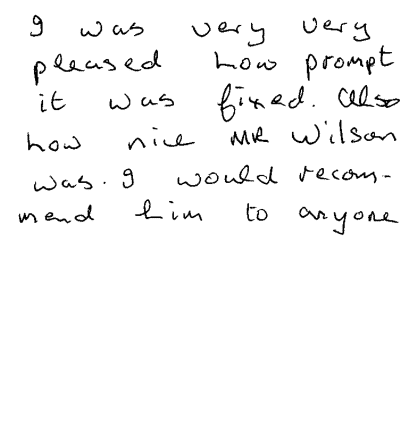 I was very very
pleased how prompt
it was fixed. Also
how nice MR Wilson
was. I would recom-
mend him to anyone